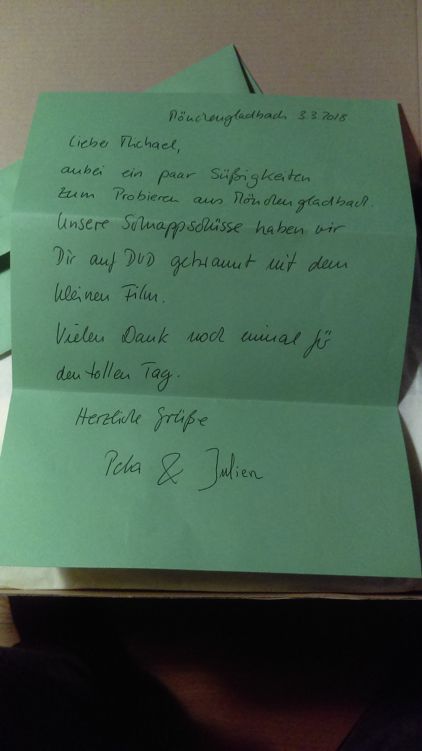 Mönchengladbach 3.3.2018
Lieber Michael,
anbei ein paar Süßigkeiten
zum Probieren aus Mönchengladbach.
Unsere Schnappschüsse haben wir
Dir auf DVD gebrannt mit dem
kleinen Film.
Vielen Dank noch einmal für
den tollen Tag.
Herzliche Grüße
Petra & Julien